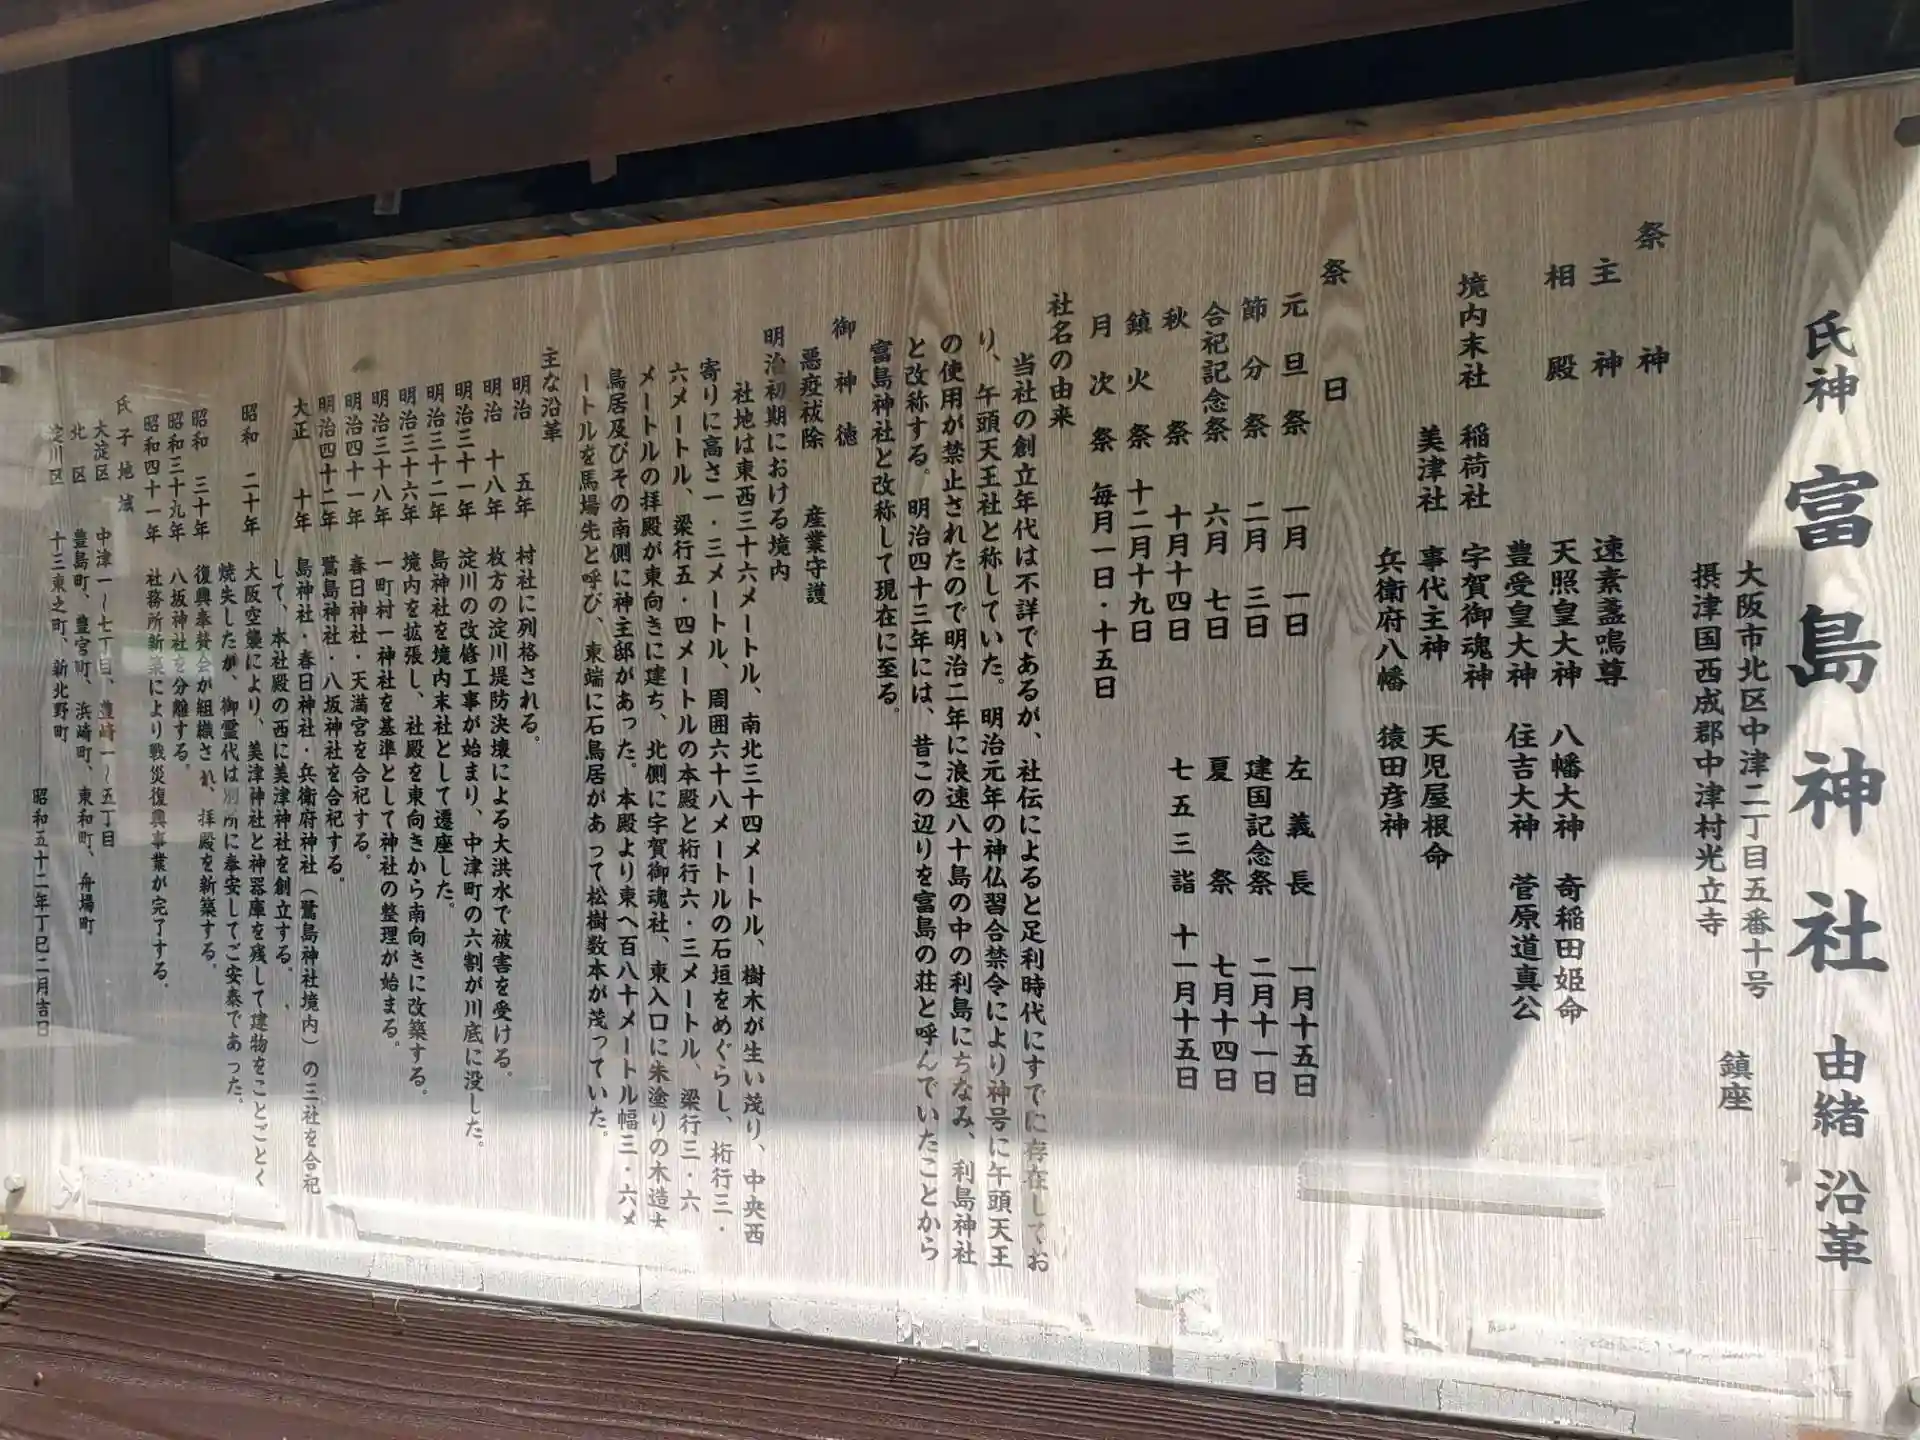 氏神 富島神社 由緒沿革
大阪市北区中津二丁目五番十号
摂津国西成郡中津村光立寺 鎮座
祭神
主神 速素盞鳴尊
相殿 天照皇大神 八幡大神 奇稲田姫命
豊受皇大神 住吉大神 菅原道真公
境内末社 稲荷社 宇賀御魂神
美津社 事代主神 天児屋根命
兵衛府八幡 猿田彦神
祭日
元旦祭 一月一日 左義長 一月十五日
節分祭 二月三日 建国記念祭 二月十一日
合祀記念祭 六月七日 夏祭 七月十四日
秋祭 十月十四日 七五三詣 十一月十五日
鎮火祭 十二月十九日
月次祭 毎月一日・十五日
社名の由来
当社の創立年代は不詳であるが、社伝によると足利時代にすでに存在してお
り、午頭天王社と称していた。明治元年の神仏習合禁令により神号に午頭天王
の使用が禁止されたので明治二年に浪速八十島の中の利島にちなみ、利島神社
と改称する。明治四十三年には、昔この辺りを富島の荘と呼んでいたことから
富島神社と改称して現在に至る。
御神徳
悪疫祓除 産業守護
明治初期における境内
社地は東西三十六メートル、南北三十四メートル、樹木が生い茂り、中央西
寄りに高さ一・三メートル、周囲六十八メートルの石垣をめぐらし、桁行三・
六メートル、梁行五・四メートルの本殿と桁行六・三メートル、梁行三・六
メートルの拝殿が東向きに建ち、北側に宇賀御魂社、東入口に朱塗りの木造大
鳥居及びその南側に神主邸があった。本殿より東へ百八十メートル幅三・六メ
ートルを馬場先と呼び、東端に石鳥居があって松樹数本が茂っていた。
主な沿革
明治 五年 村社に列格される。
明治 十八年 枚方の淀川堤防決壊による大洪水で被害を受ける。
明治三十一年 淀川の改修工事が始まり、中津町の六割が川底に没した。
明治三十二年 島神社を境内末社として遷座した。
明治三十六年 境内を拡張し、社殿を東向きから南向きに改築する。
明治三十八年 一町村一神社を基準として神社の整理が始まる。
明治四十一年 春日神社・天満宮を合祀する。
明治四十二年 鷺島神社・八坂神社を合祀する。
大正 十年 島神社・春日神社・兵衛府神社（鷺島神社境内）の三社を合祀
して、本社殿の西に美津神社を創立する。
昭和 二十年 大阪空襲により、美津神社と神器庫を残して建物をことごとく
焼失したが、御霊代は別所に奉安してご安泰であった。
昭和 三十年 復興奉賛会が組織され、拝殿を新築する。
昭和三十九年 八坂神社を分離する。
昭和四十一年 社務所新築により戦災復興事業が完了する。
氏子地域
大淀区 中津一～七丁目、豊崎一～五丁目
北区 豊島町、豊宮町、浜崎町、東和町、舟場町
淀川区 十三東之町、新北野町
昭和五十二年丁巳二月吉日